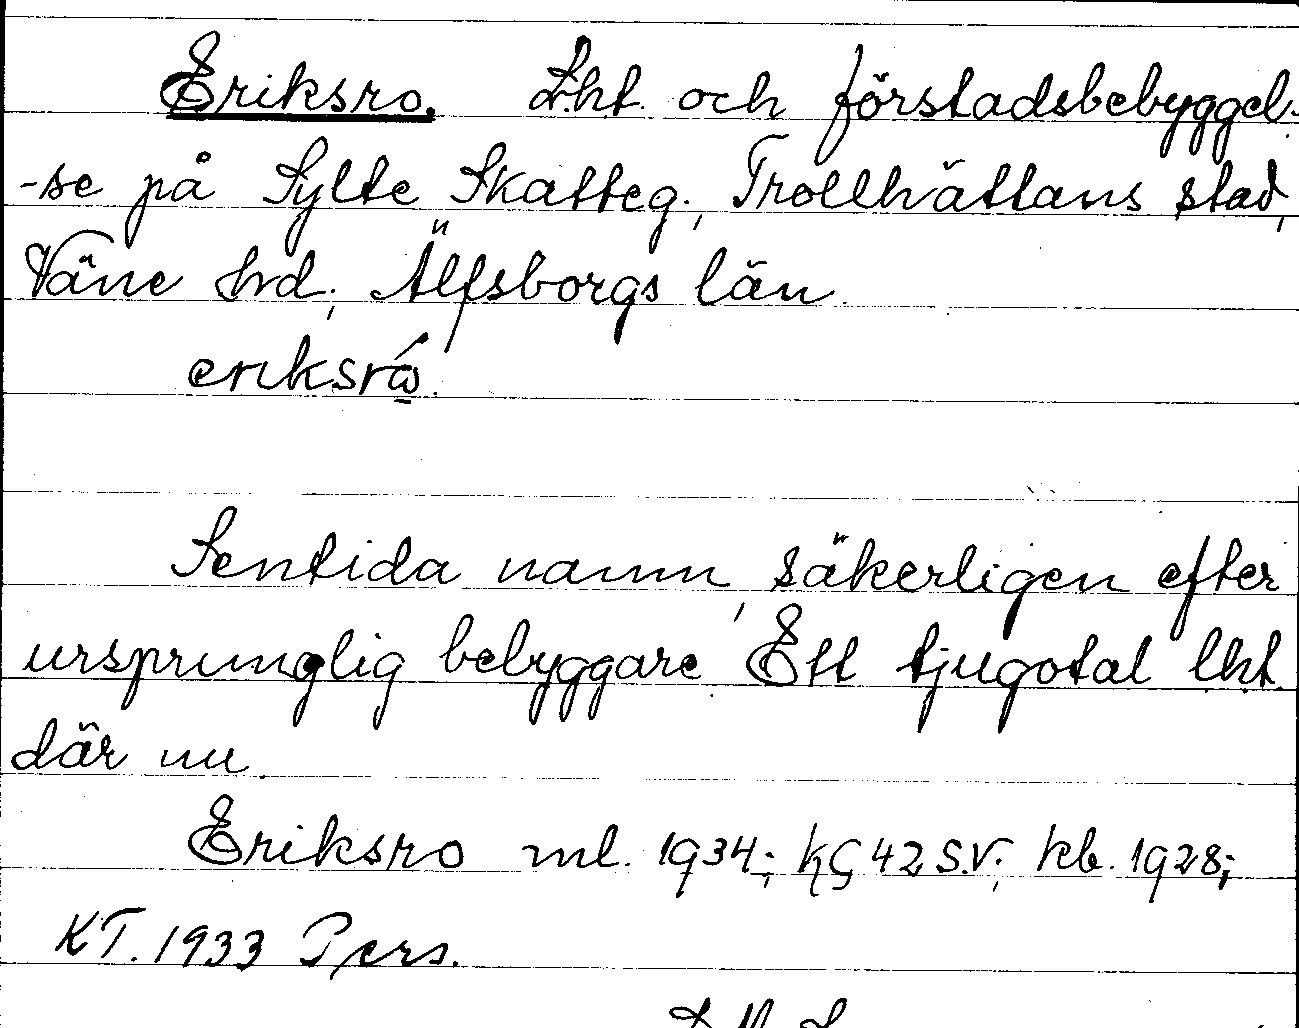 Eriksro. Lht. och förstadsbebyggel-
-se på Sylte Skatteg., Trollhättans stad,
Väne hrd, Älfsborgs län.
eriksró.
Sentida namn, säkerligen efter
ursprunglig bebyggare. Ett tjugotal lht.
där nu.
Eriksro ml. 1934; KG 42 S.V; kb. 1928;
KT. 1933 Pers.